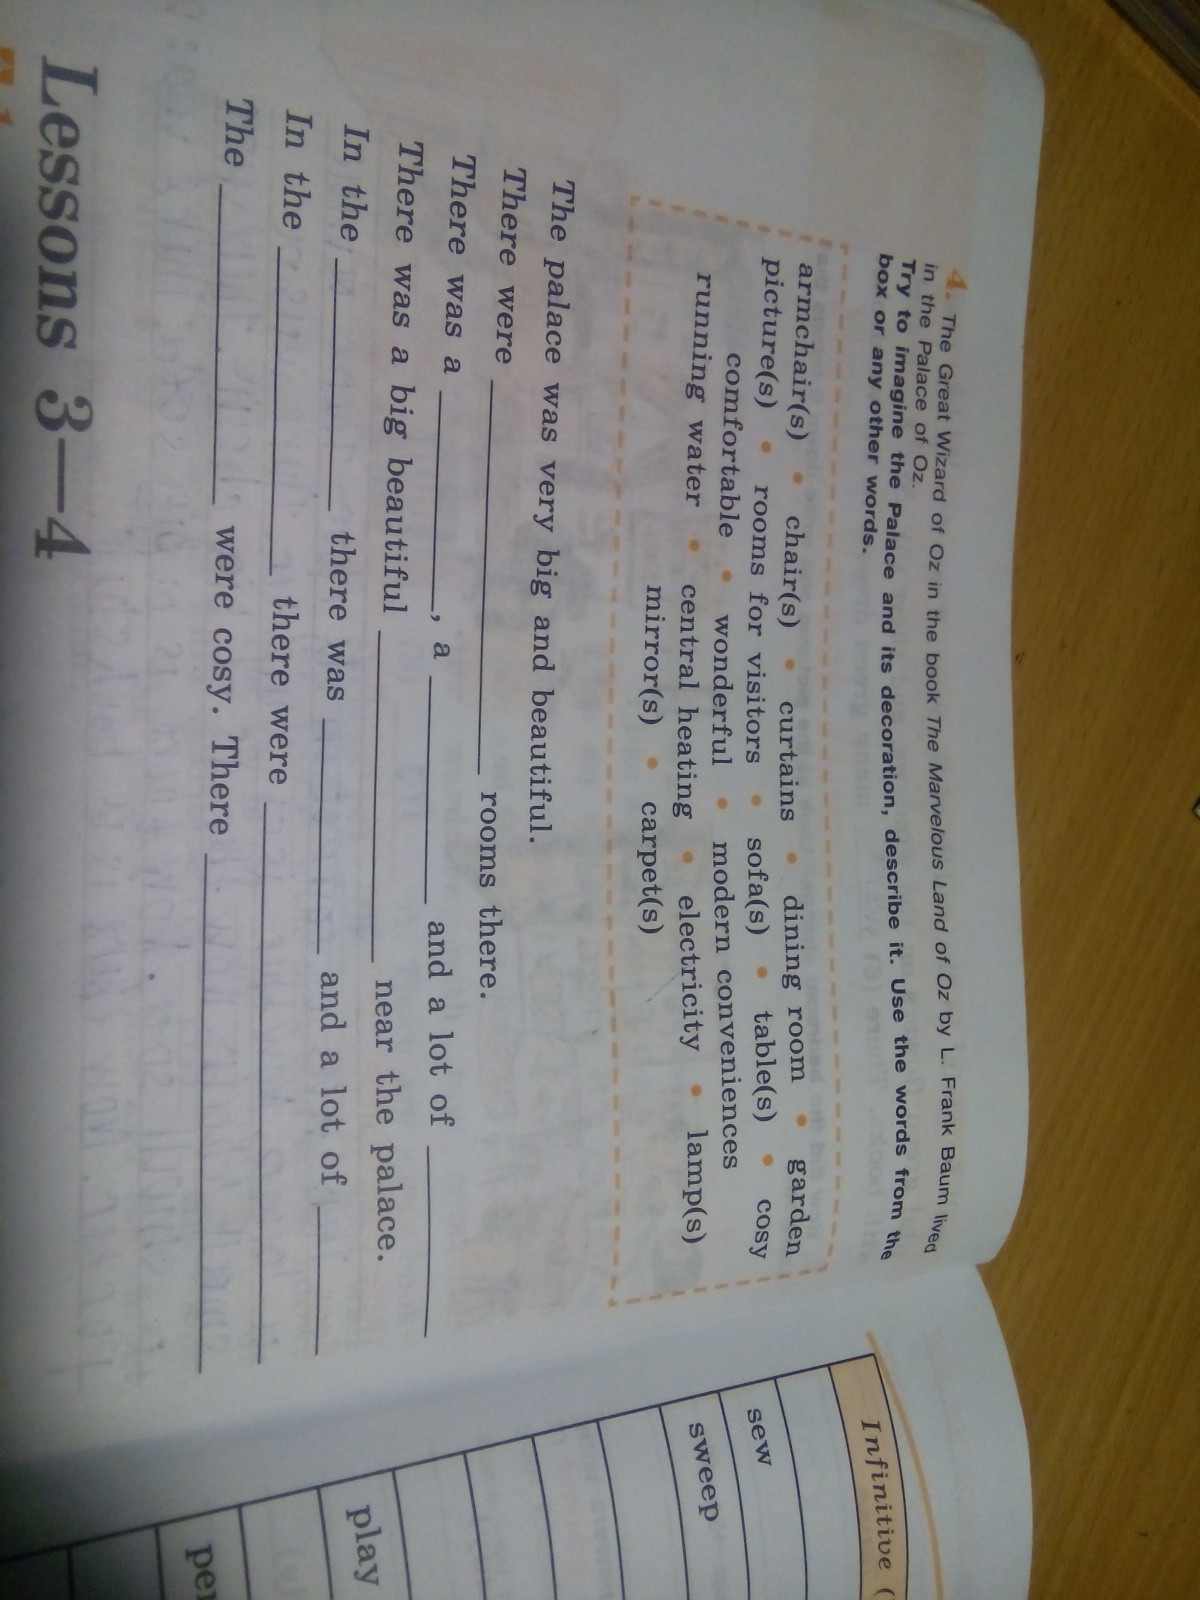 4. The Great Wizard of Oz in the book The Marvelous Land of Oz by L. Frank Baum lived
in the Palace of Oz.
Try to imagine the Palace and its decoration, describe it. Use the words from the
box or any other words.
armchair(s) • chair(s) • curtains • dining room • garden
picture(s) • rooms for visitors • sofa(s) • table(s) • cosy
comfortable • wonderful • modern conveniences
running water • central heating • electricity • lamp(s)
mirror(s) • carpet(s)
The palace was very big and beautiful.
There were ____ rooms there.
There was a ____, a ____ and a lot of ____
There was a big beautiful ____ near the palace.
In the ____ there was ____ and a lot of ____
In the ____ there were ____
The ____ were cosy. There ____
Lessons 3—4
Infinitive (
sew
sweep
play